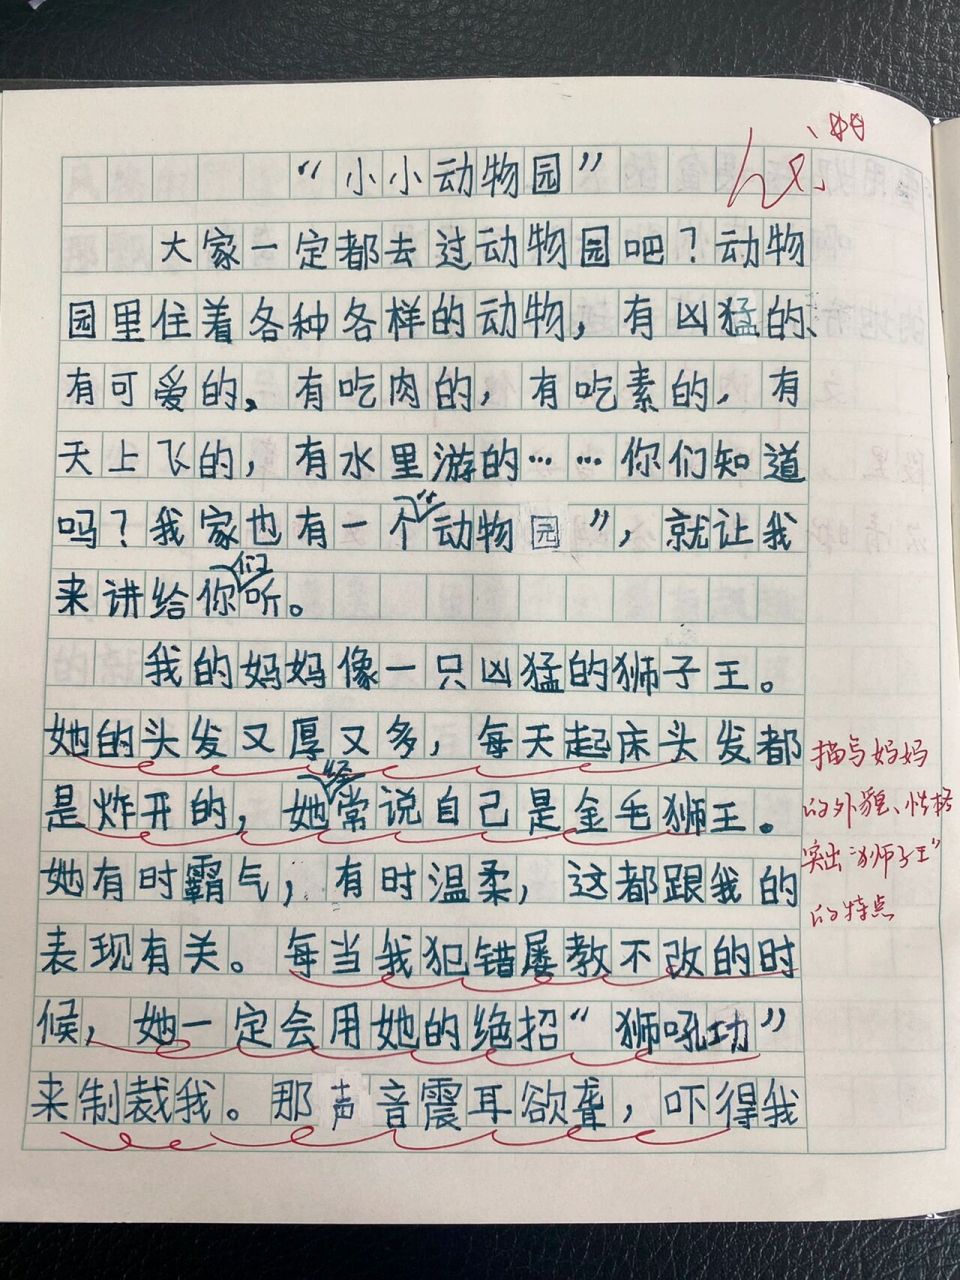 “小小动物园”
大家一定都去过动物园吧？动物
园里住着各种各样的动物，有凶猛的、
有可爱的、有吃肉的，有吃素的，有
天上飞的，有水里游的……你们知道
吗？我家也有一个“动物园”，就让我
来讲给你们听。
我的妈妈像一只凶猛的狮子王。
她的头发又厚又多，每天起床头发都
是炸开的，她经常说自己是金毛狮王。
她有时霸气，有时温柔，这都跟我的
表现有关。每当我犯错屡教不改的时
候，她一定会用她的绝招“狮吼功”
来制裁我。那声音震耳欲聋，吓得我
描写妈妈
的外貌、性格
突出“狮子王”
的特点